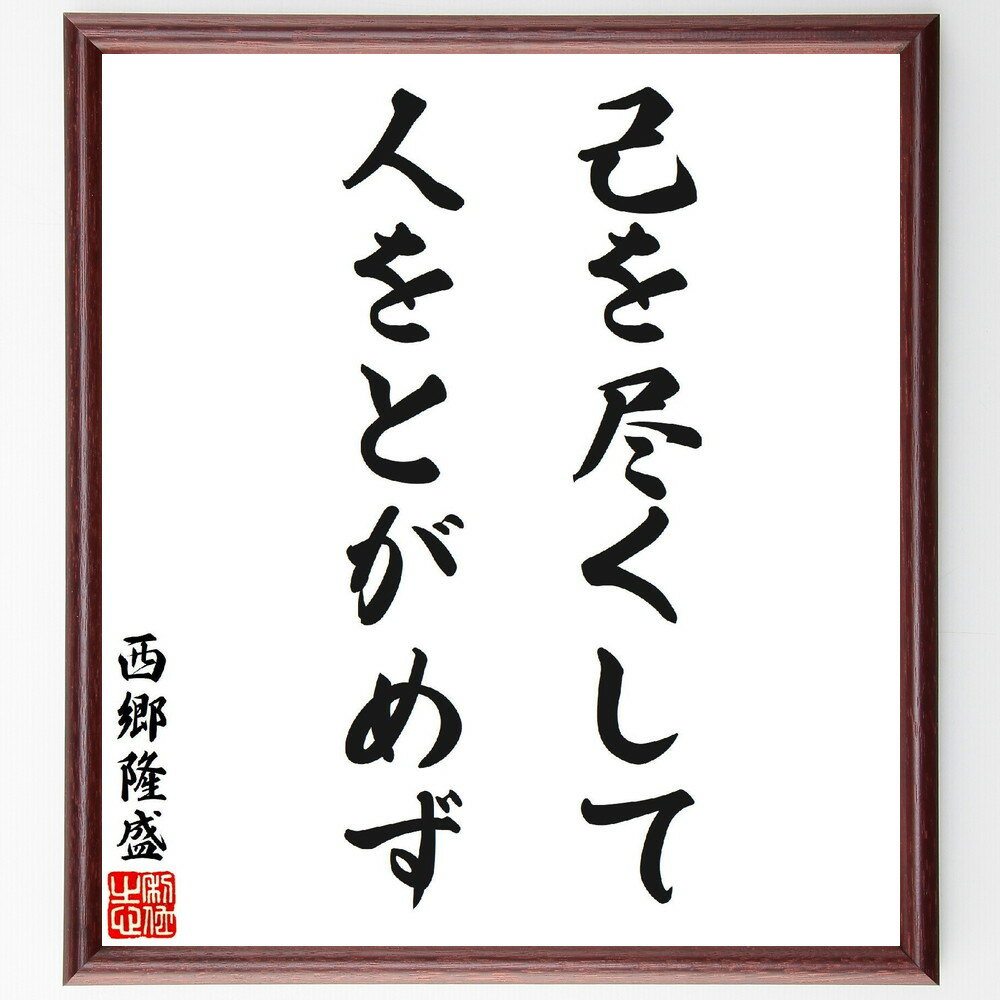 己を尽くして
人をとがめず
西郷隆盛